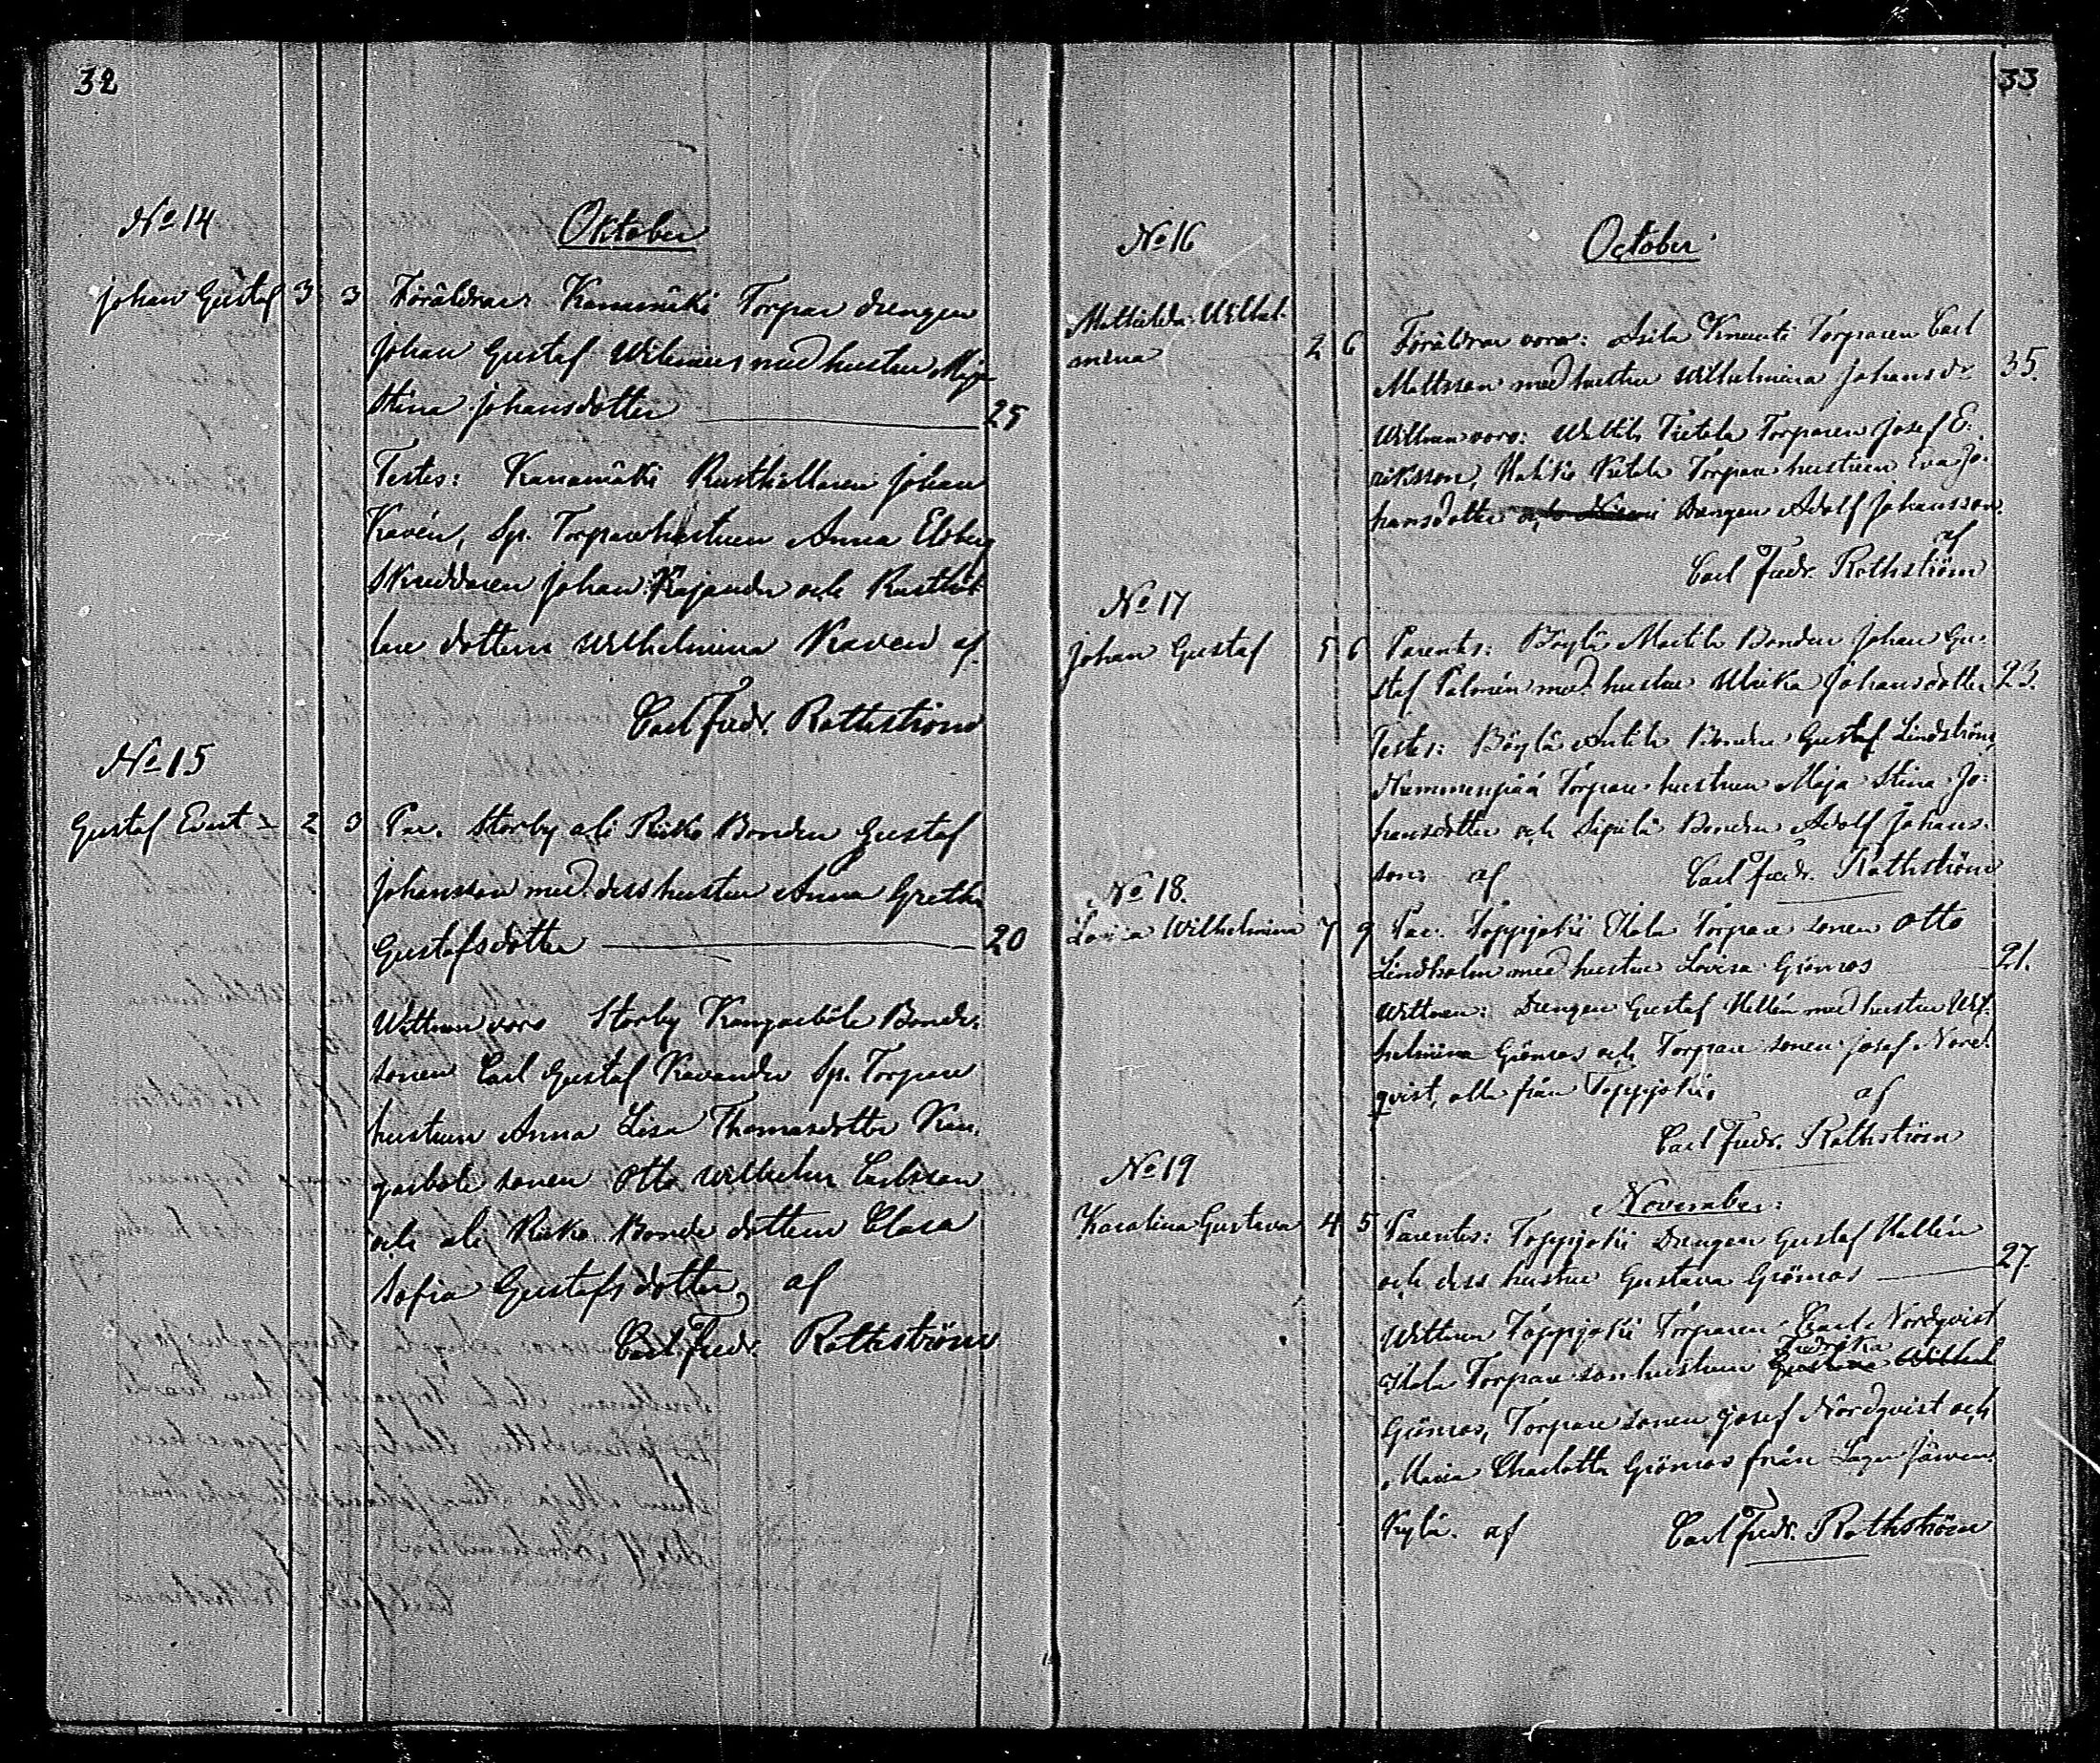 32
No 14
Oktober
Johan Gustaf 3 3 Föräldrar: Kanamäki Torpar drengen
Johan Gustaf Wilenius med hustru Maja
Stina Johansdotter 25
Testes: Kanamäki Rusthållaren Johan
Kavén, Sp. Torparehustrun Anna Elsberg
Skreddaren Johan Kajander och Rusthål-
lare dottern Wilhelmina Kaven af
Carl Fredr. Rothström
No 15
Gustaf Evert 2 3 Par. Storby ali Risko Bonden Gustaf
Johansson med dess hustru Anna Gretha
Gustafsdotter 20
Wittnen voro Storby Kangarböle Bonde-
sonen Carl Gustaf Kavander Sp. Torpare
hustrun Anna Lisa Thomasdotter Kan-
garböle sonen Otto Wilhelm Carlsson
och ali Risko Bonde dottern Clara
Sofia Gustafsdotter, af
Carl Fredr. Rothström
33
No 16
October
Mathilda Wilhel-
mina 2 6 Föräldrar voro: Asila Knuuti Torparen Carl
Mattsson med hustru Wilhelmina Johansdr 35.
Wittnen voro: Tietala Torparen Josef E-
riksson, Torpare hustrun Eva Jo-
hansdotter och Drengen Adolf Johansson.
af
Carl Fredr. Rothström
No 17
Johan Gustaf 5 6 Parentes: Böylä Markila Bonden Johan Gu-
staf Palmén med hustru Ulrika Johansdotter 23.
Testes: Böylä Antila Bonden Gustaf Lindström,
Nummenpää Torpare hustrun Maja Stina Jo-
hansdotter och Sipilä Bonden Adolf Johans-
son. af Carl Fredr. Rothström
No 18.
Lovisa Wilhelmina 7 9 Par. Toppjoki Torpare sonen Otto
Lindholm med hustru Lovisa Grönroos 21.
Wittnen: Drengen Gustaf Hellén med hustru Wil-
helmina Grönroos och Torpare sonen Josef Nord-
qvist, alla från Toppjoki. af
Carl Fredr. Rothström
November:
No 19
Karolina Gustava 4 5 Parentes: Toppjoki Drengen Gustaf Hellén
och dess hustru Gustava Grönroos 27.
Wittnen Toppjoki Torparen Carl Nordqvist
Fredrika
Torpare sonhustrun Gustava Wilhel
Grönroos, Torpare sonen Josef Nordqvist och
Maria Charlotta Grönroos från Järven-
kylä. af Carl Fredr. Rothström